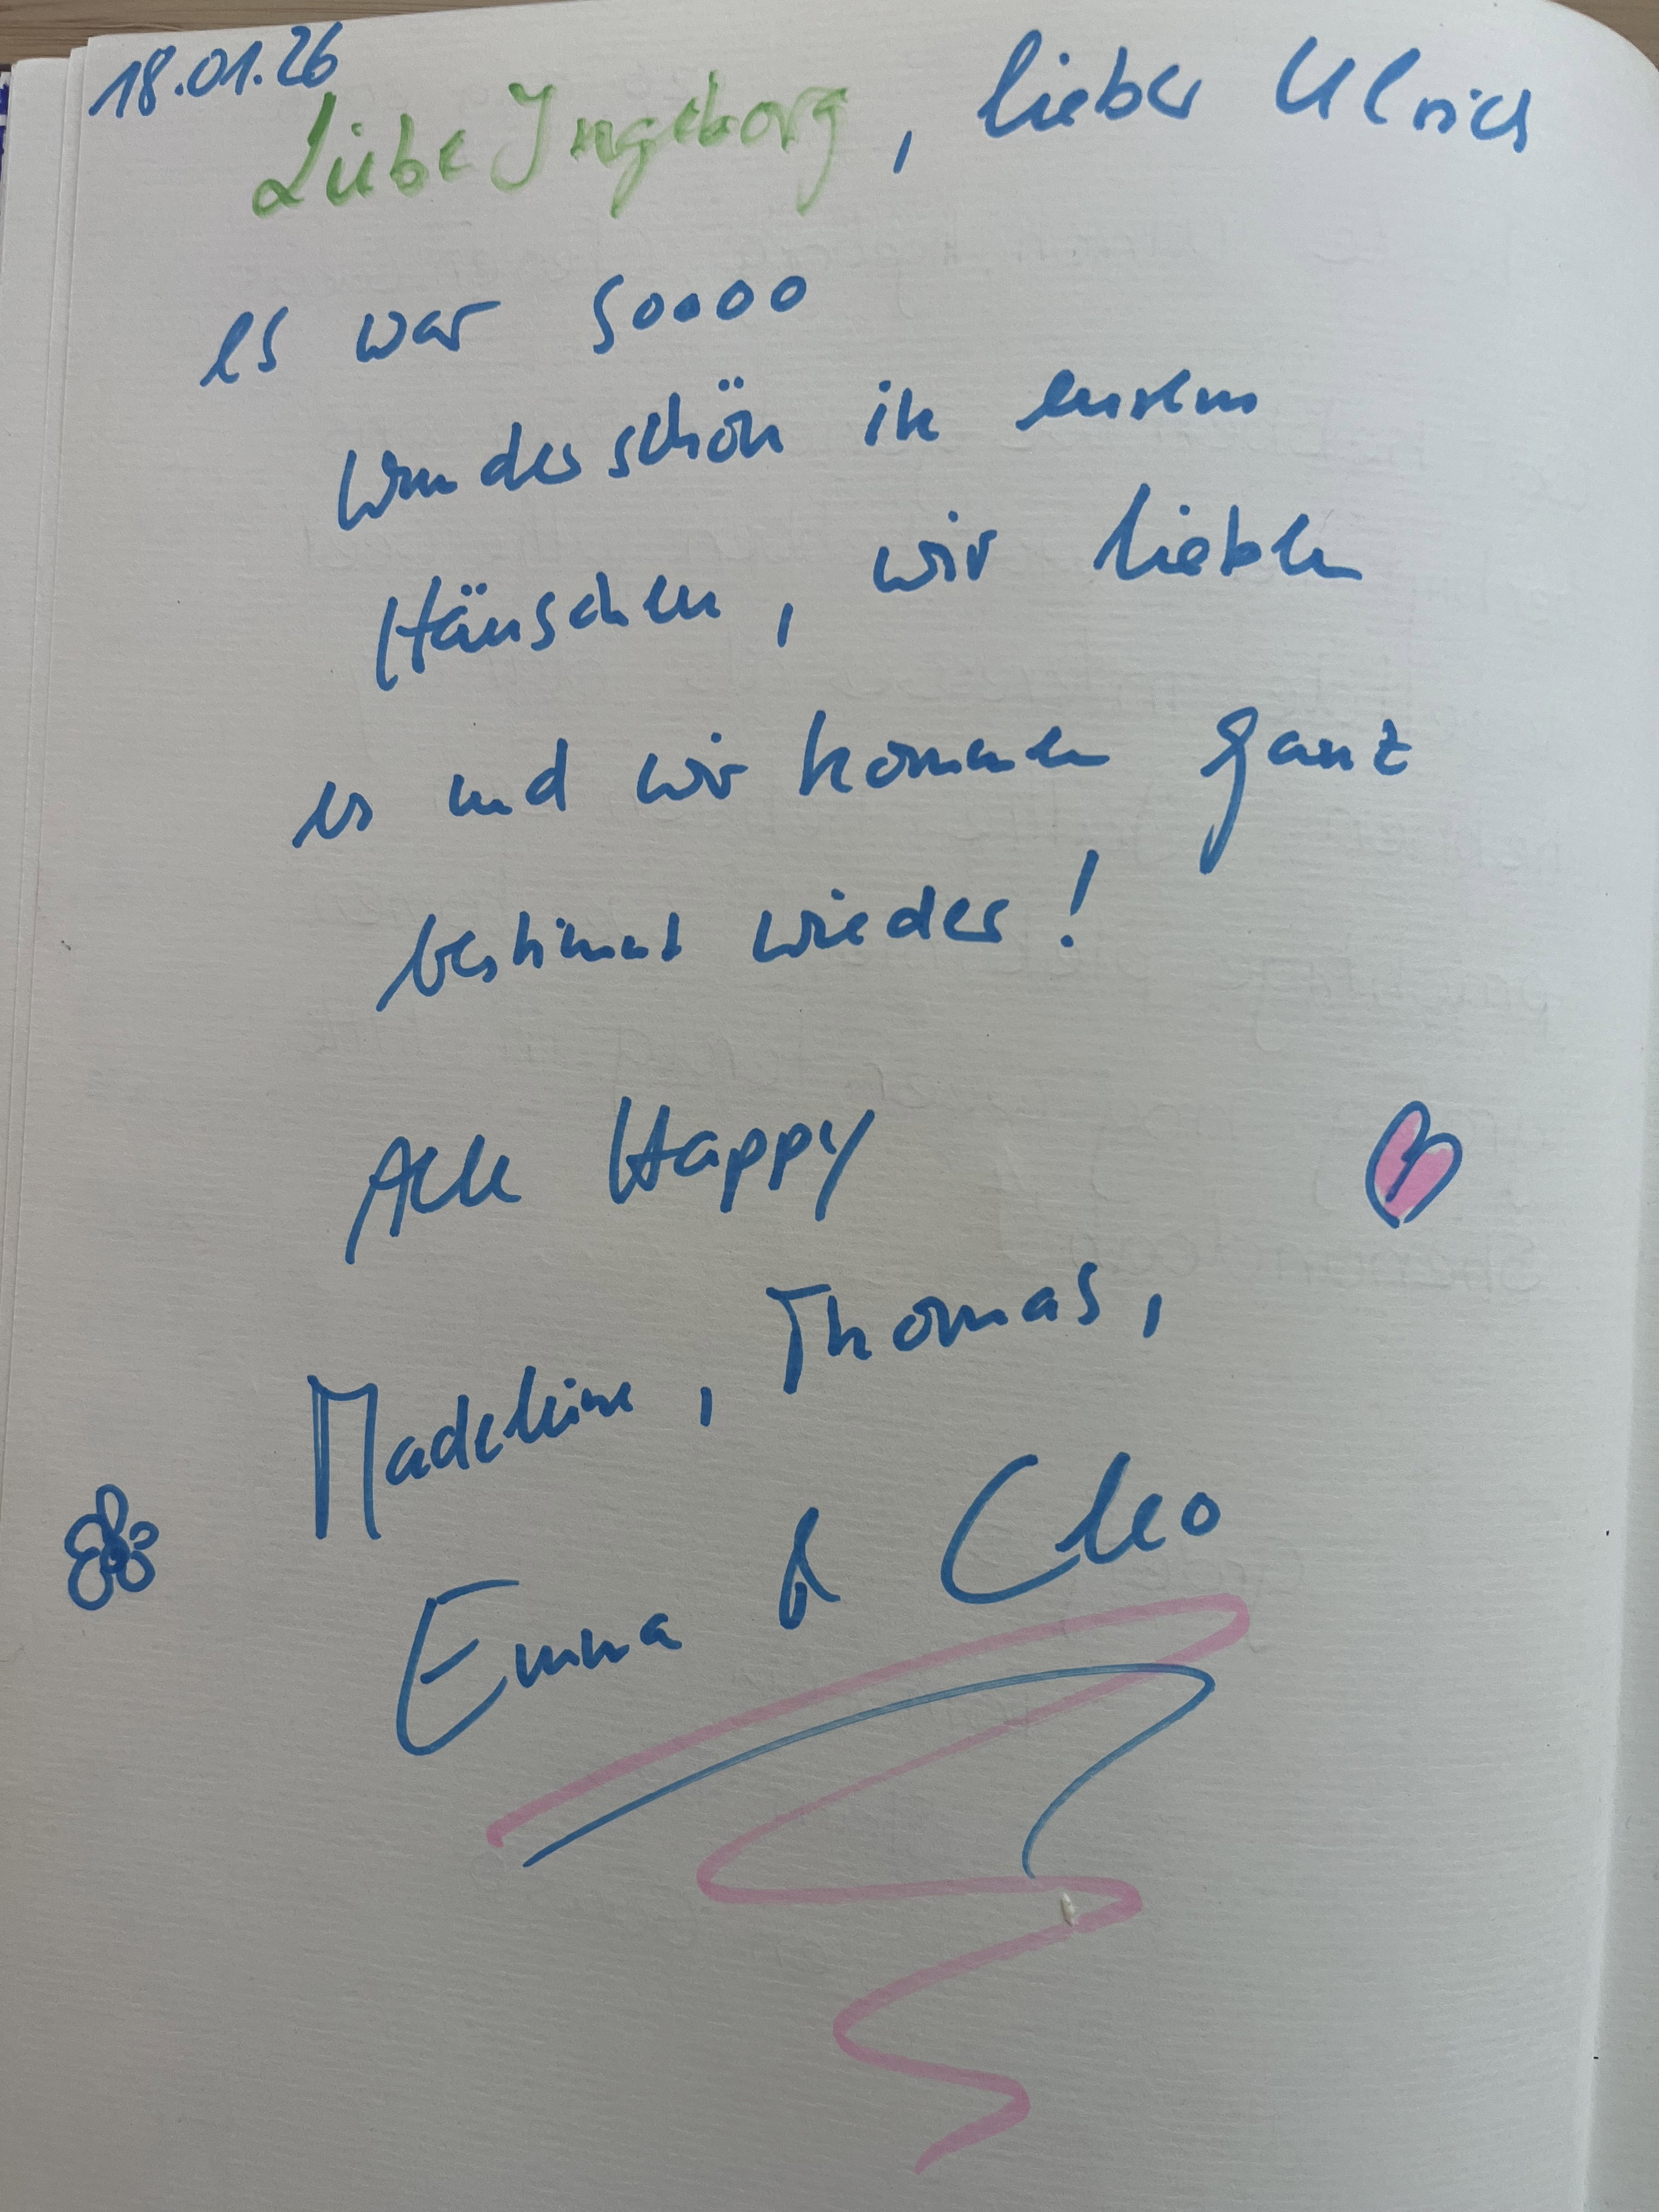 18.01.26
Liebe Ingeborg, lieber Ulrich
es war soooo
wunderschön in eurem
Häuschen, wir lieben
es und wir kommen ganz
bestimmt wieder!
Alle Happy
Madeleine, Thomas,
Emma & Cleo